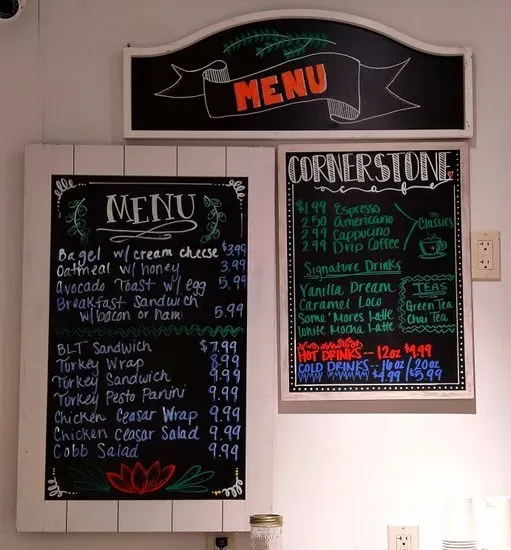 MENU
MENU
Bagel w/ cream cheese $3.99
Oatmeal w/ honey 3.99
Avocado Toast w/ egg 5.99
Breakfast Sandwich
w/ bacon or ham 5.99
BLT Sandwich $7.99
Turkey Wrap 8.99
Turkey Sandwich 9.99
Turkey Pesto Panini 9.99
Chicken Ceasar Wrap 9.99
Chicken Ceasar Salad 9.99
Cobb Salad 9.99
CORNERSTONE
cafe
$1.99 Espresso
2.50 Americano
2.99 Cappucino
2.99 Drip Coffee
The Classics
Signature Drinks
Vanilla Dream
Caramel Loco
Some' Mores Latte
White Mocha Latte
TEAS
Green Tea
Chai Tea
HOT DRINKS -- 12oz $4.99
COLD DRINKS -- 16oz / 20oz
$4.99 / $5.99